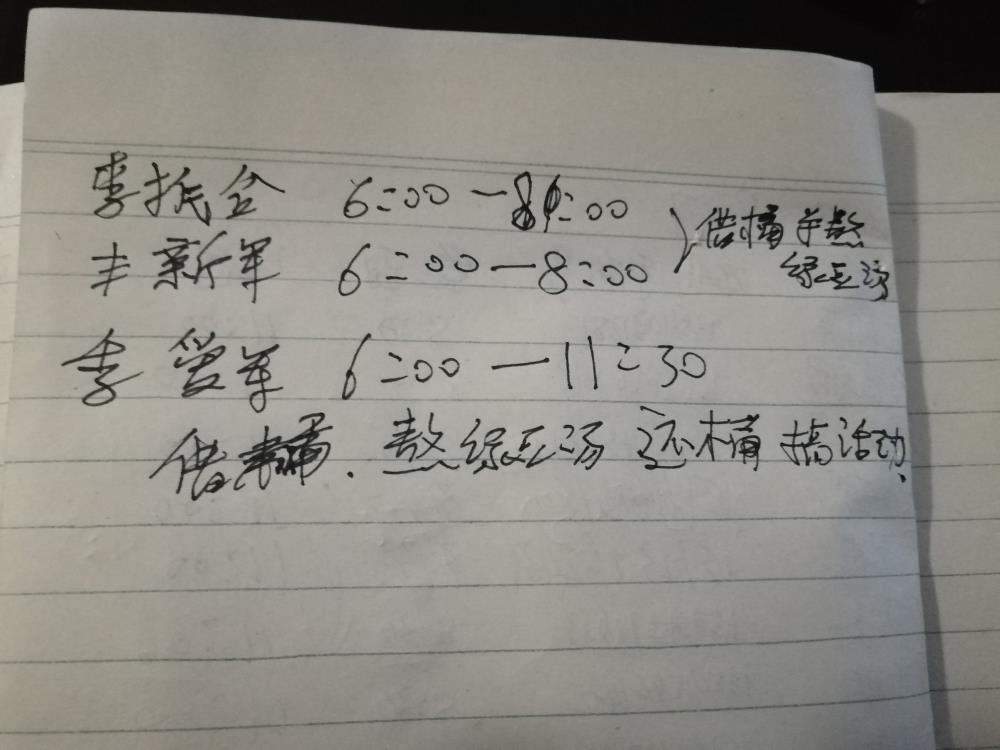 李振合 6:00-8:00
丰新军 6:00-8:00
借桶并熬
绿豆汤
李爱军 6:00-11:30
借桶.熬绿豆汤 还桶 搞活动.